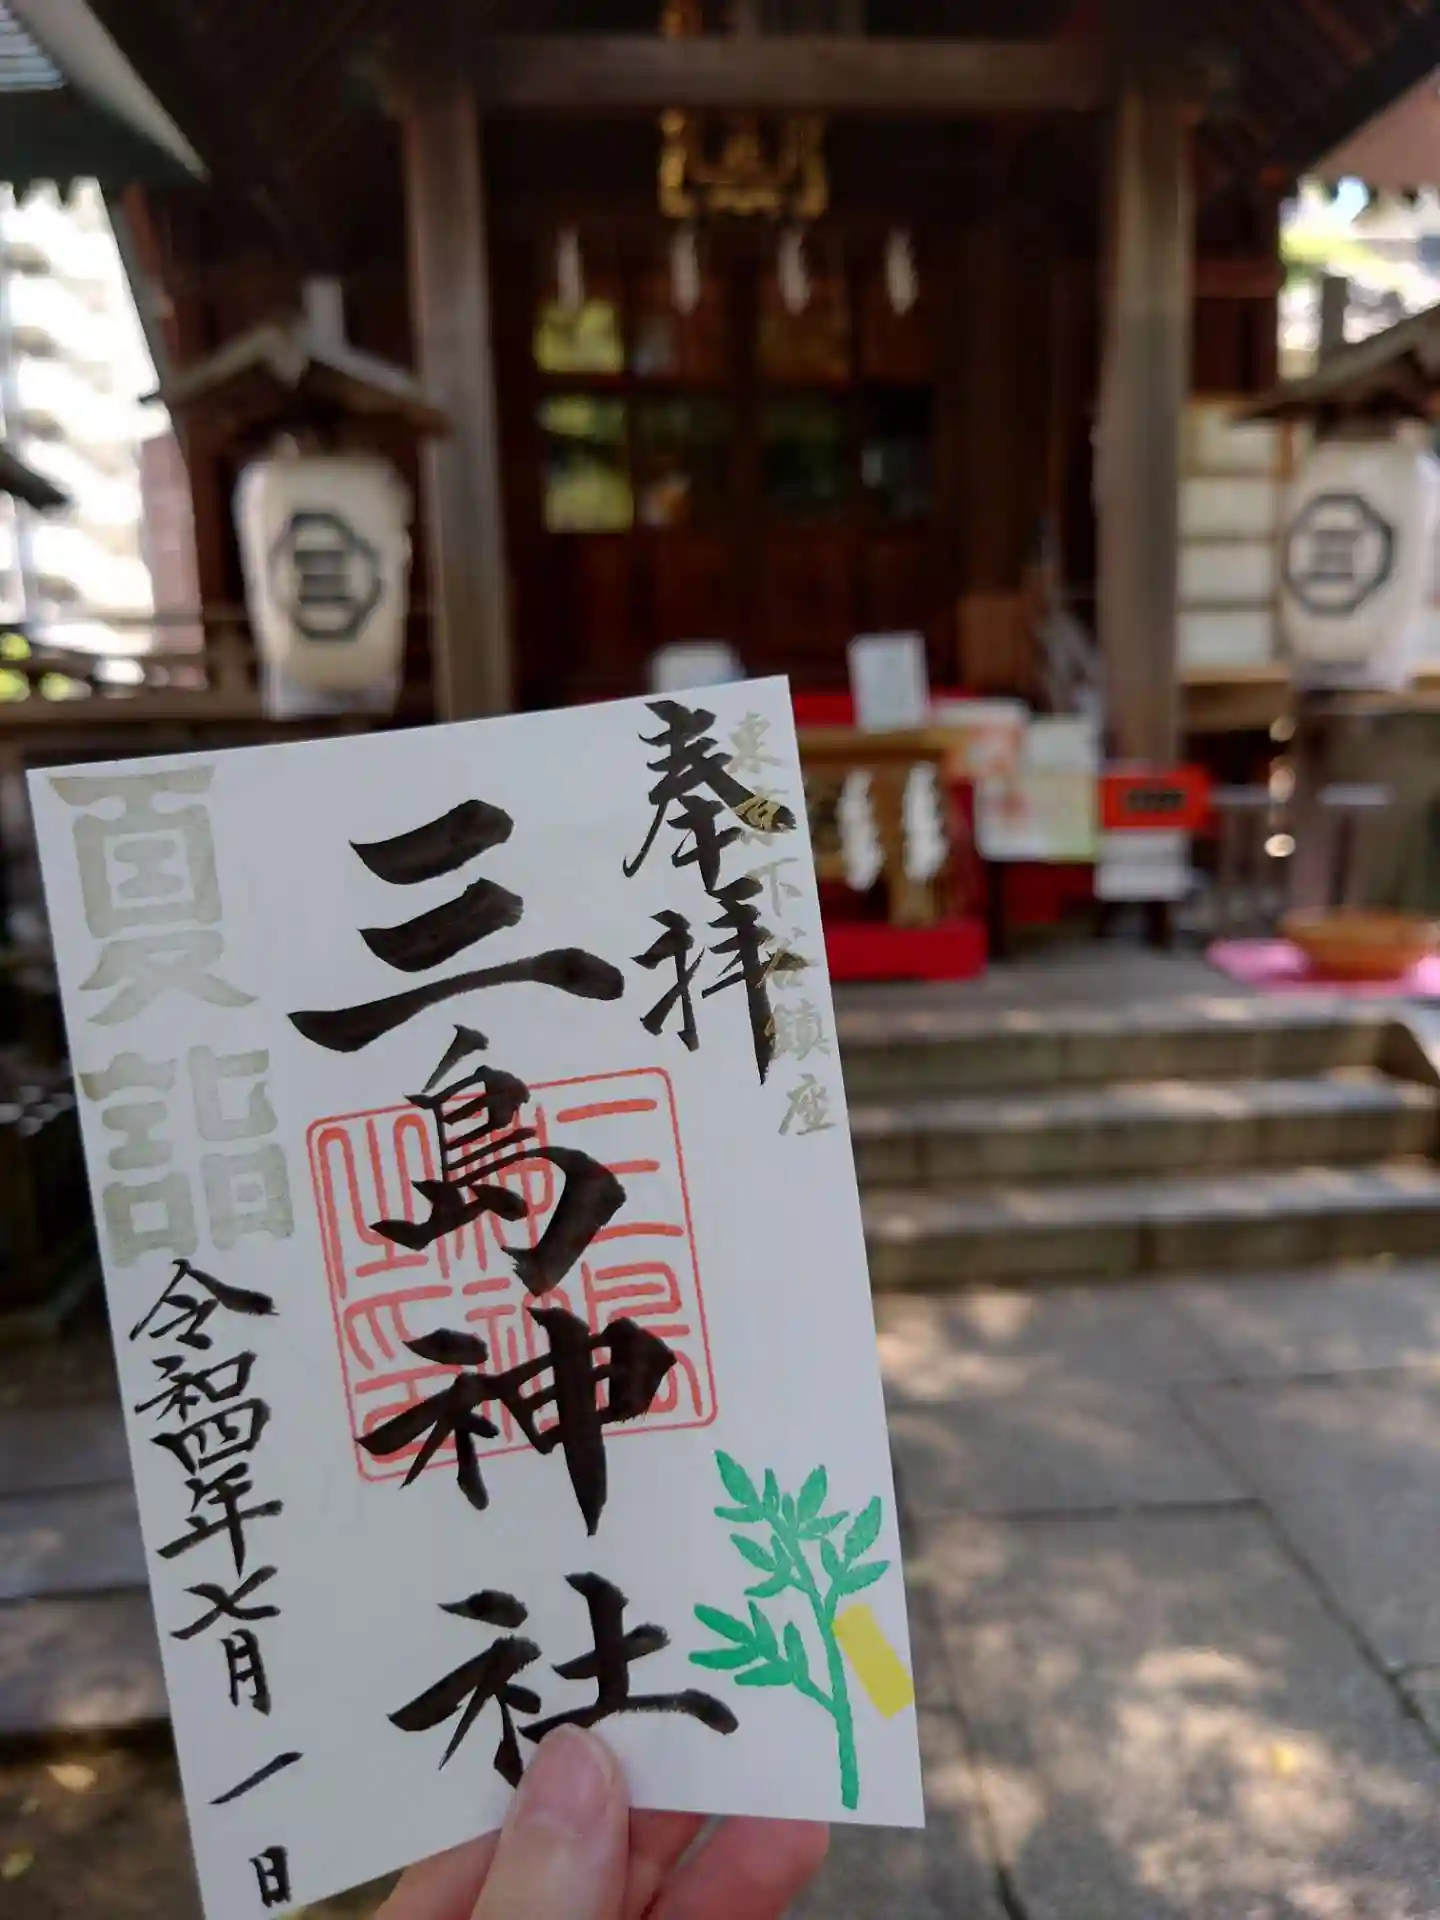 東京下谷鎮座
奉拝
三島神社
三島神社之印
夏詣
令和四年七月一日
三
三